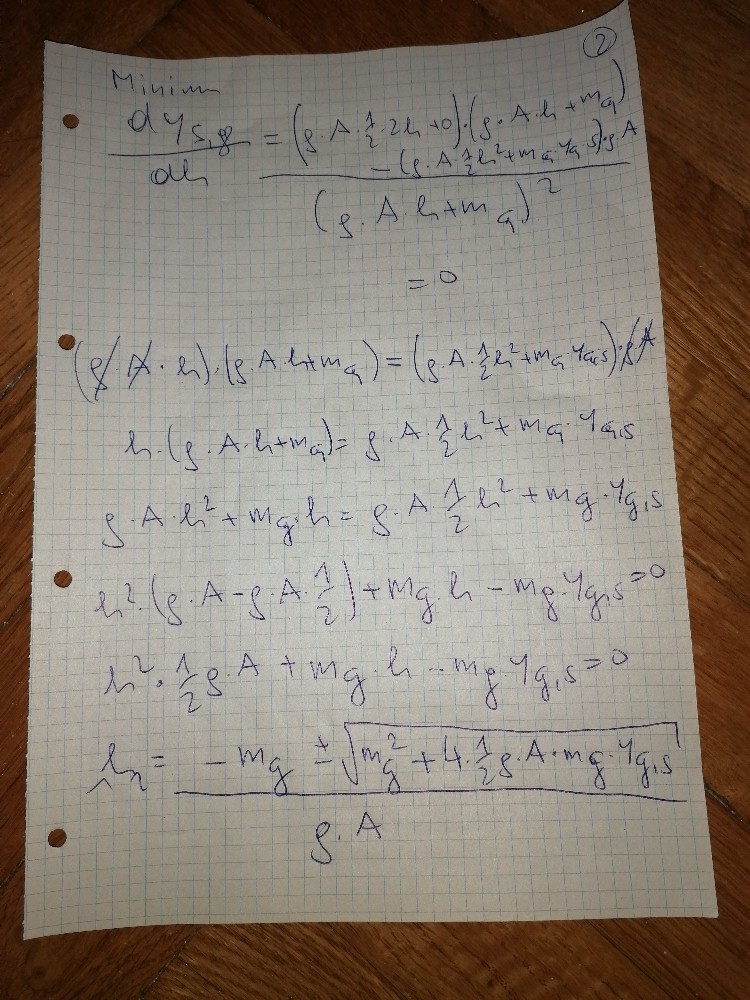 ②
Minimum
dy_{s,g}/dh = ((ρ·A·1/2·2h+0)·(ρ·A·h+m_g) - (ρ·A·1/2h²+m_g·y_{g,s})·ρ·A)/(ρ·A·h+m_g)²
= 0
(ρ·A·h)·(ρ·A·h+m_g) = (ρ·A·1/2h²+m_g·y_{g,s})·ρA
h·(ρ·A·h+m_g) = ρ·A·1/2h²+m_g·y_{g,s}
ρ·A·h²+m_g·h = ρ·A 1/2 h²+m_g·y_{g,s}
h²·(ρ·A-ρ·A·1/2)+m_g·h - m_g·y_{g,s}=0
h²·1/2ρ·A+m_g·h-m_g·y_{g,s}=0
h_{1/2} = (-m_g ± √(m_g²+4·1/2ρ·A·m_g·y_{g,s}))/(ρ·A)